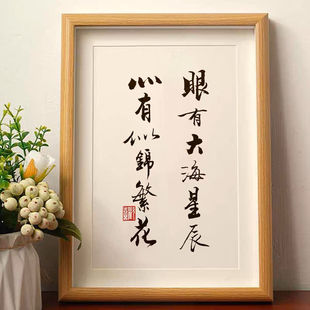 眼有大海星辰
心有似錦繁花